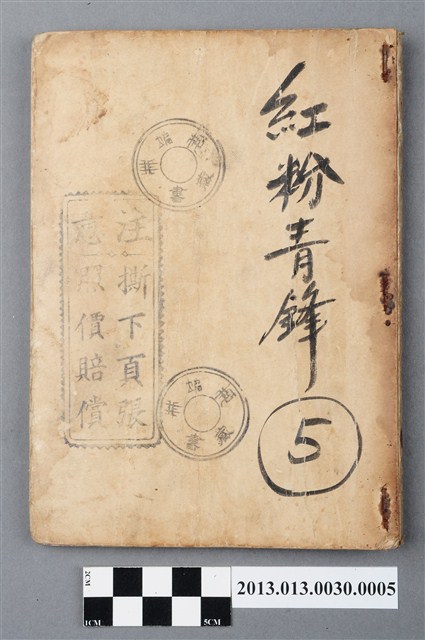 紅粉青鋒
5
注意
撕下頁張
照價賠償
2CM
1CM
5CM
2013.013.0030.0005